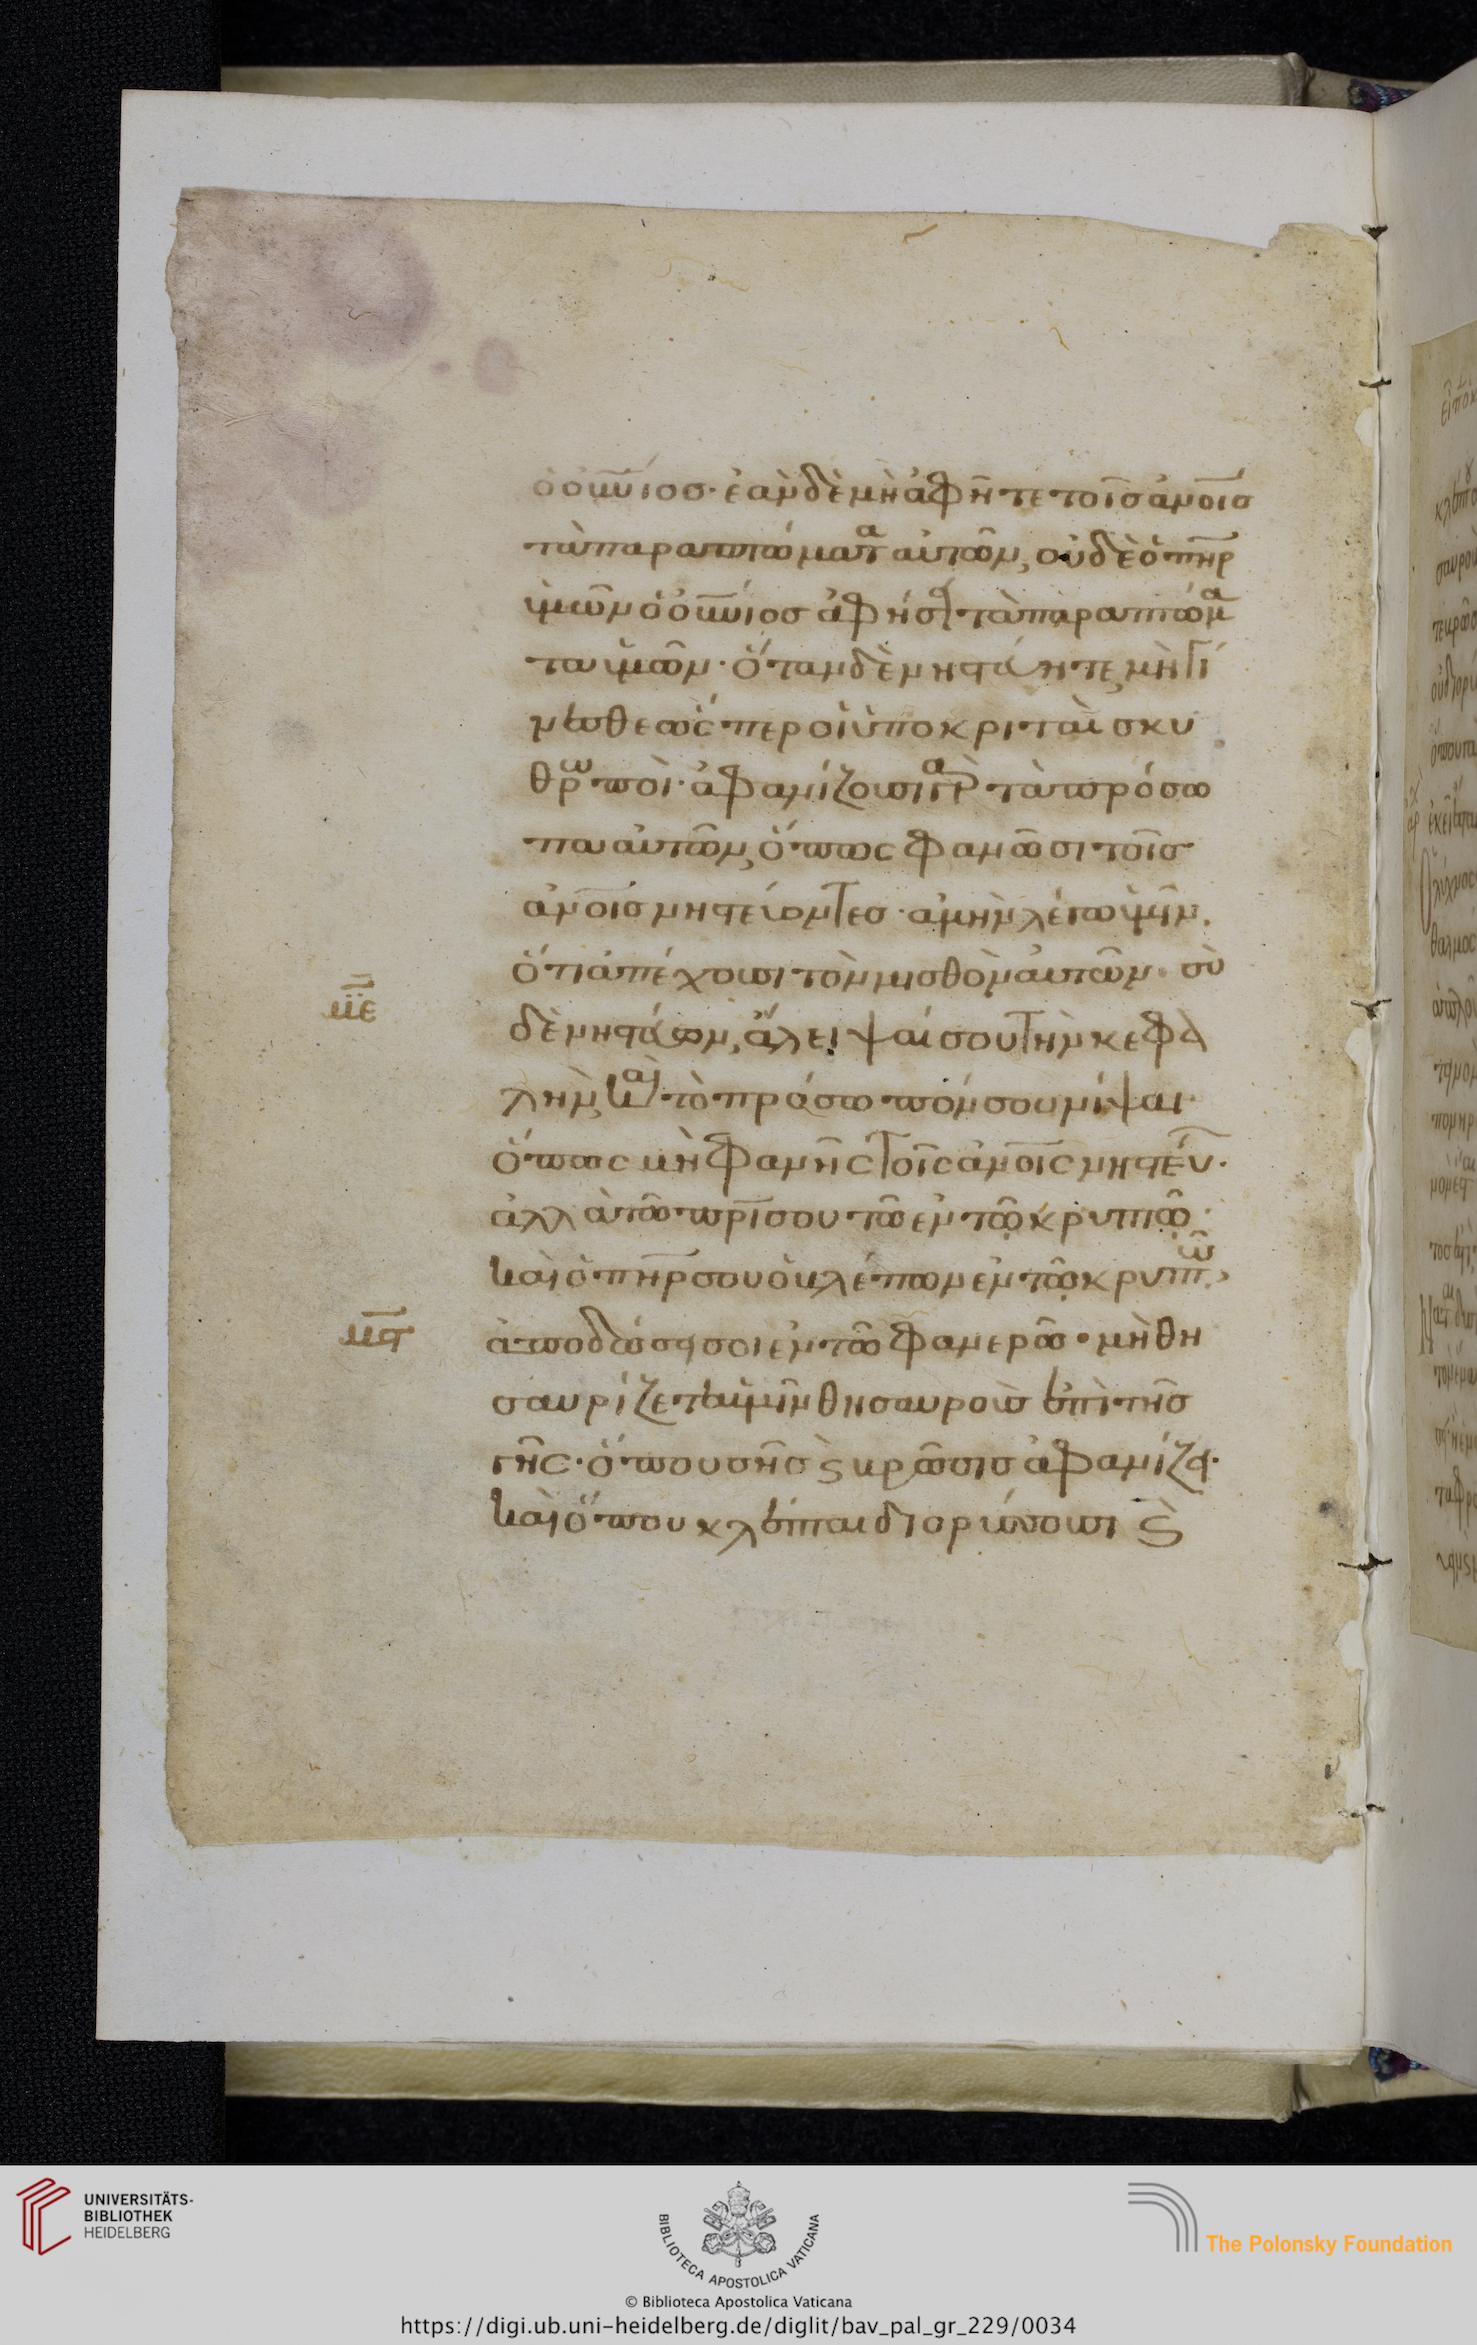 ὁ οὐνιοσ· ἐὰν δὲ μὴ ἀφῆτε τοῖσ ἀνοισ
τὰ παραπτώματα αὐτῶν, οὐδὲ ὁ πηρ
ὑμῶν ὁ οὐνιοσ ἀφήσει τὰ παραπτώμα
τα ὑμῶν· ὅταν δὲ νηστεύητε, μὴ γί
νεσθε ὥσπερ οἱ ὑποκριταὶ σκυ
θρωποί· ἀφανίζουσι γὰρ τὰ πρόσω
πα αὐτῶν, ὅπως φανῶσι τοῖσ
ἀνοισ νηστεύοντεσ· ἀμὴν λέγω ὑμῖν.
ὅτι ἀπέχουσι τὸν μισθὸν αὐτῶν· σὺ
με
δὲ νηστεύων, ἄλειψαί σου τὴν κεφα
λὴν, καὶ τὸ πρόσωπόν σου νίψαι·
ὅπως μὴ φανῆς τοῖς ἀνοις νηστεύων·
ἀλλὰ τῶ πρι σου τῶ ἐν τῶ κρυπτῶ·
καὶ ὁ πηρ σου ὁ βλέπων ἐν τῶ κρυπτῶ,
μϛ
ἀποδώσει σοι ἐν τῶ φανερῶ· μὴ θη
σαυρίζετε ὑμῖν θησαυροὺσ ἐπὶ τῆσ
γῆς· ὅπου σῆσ ϗ βρῶσισ ἀφανίζει·
καὶ ὅπου κλέπται διορύσσουσι ϗ
UNIVERSITÄTS-
BIBLIOTHEK
HEIDELBERG
BIBLIOTECA APOSTOLICA VATICANA
The Polonsky Foundation
© Biblioteca Apostolica Vaticana
https://digi.ub.uni-heidelberg.de/diglit/bav_pal_gr_229/0034